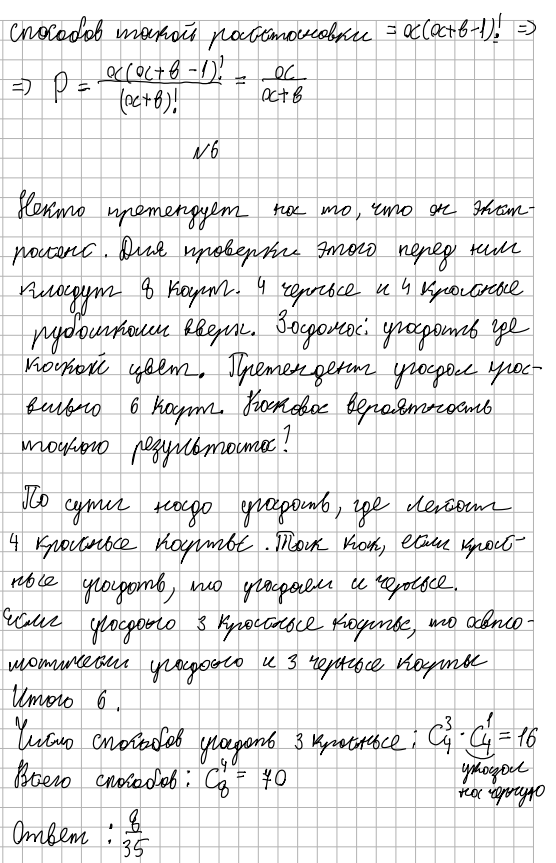 способов такой расстановки = a(a+b-1)! =>
=> P = a(a+b-1)! / (a+b)! = a / a+b
№6
Некто претендует на то, что он экст-
расенс. Для проверки этого перед ним
кладут 8 карт. 4 черные и 4 красные
рубашками вверх. Задача: угадать где
какой цвет. Претендент угадал пра-
вильно 6 карт. Какова вероятность
такого результата?
По сути надо угадать, где лежат
4 красные карты. Так как, если крас-
ные угадать, то угадаем и черные.
Если угадано 3 красные карты, то авто-
матически угадано и 3 черные карты
Итого 6.
Число способов угадать 3 красные: C₄³ · C₄¹ = 16
указал
на черную
Всего способов: C₈⁴ = 70
Ответ: 8/35